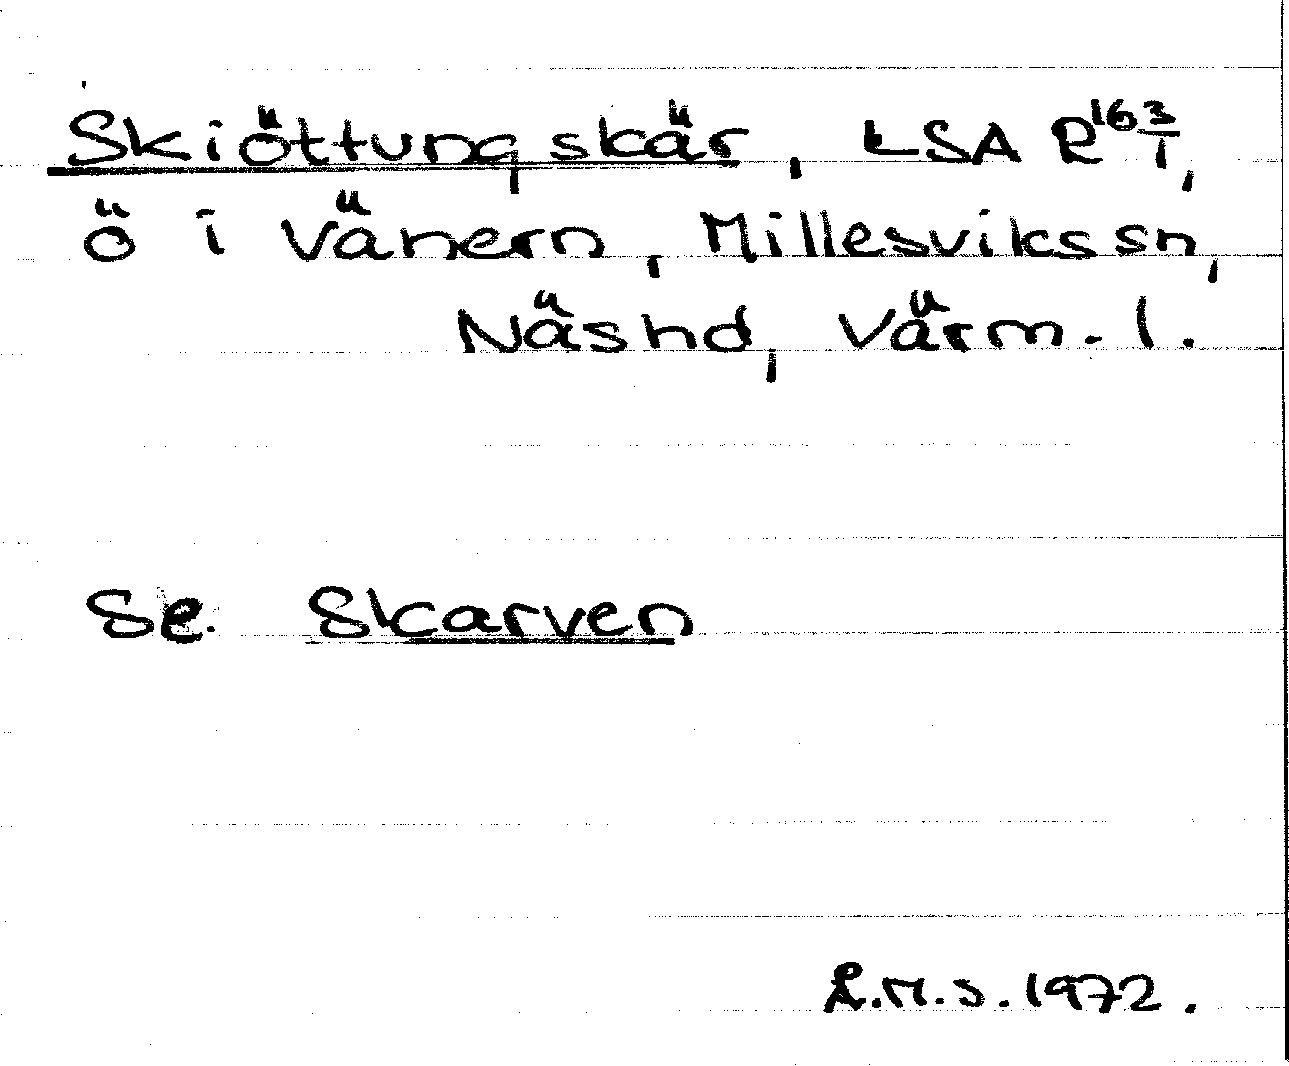 Skiöttungskär, LSA R 163/1,
ö i Vänern, Millesviks sn,
Näs hd, Värm. l.
Se. Skarven
Å.M.S. 1972.